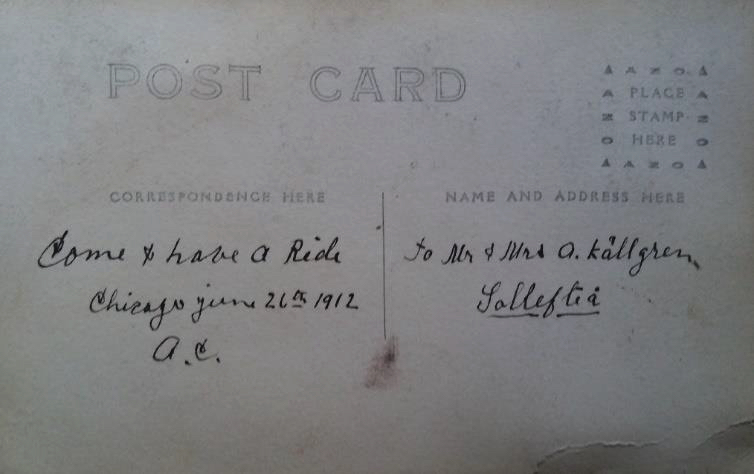 POST CARD
AZO
PLACE
STAMP
HERE
AZO
CORRESPONDENCE HERE
NAME AND ADDRESS HERE
Come & have a Ride
Chicago june 26th 1912
A.C.
To Mr & Mrs A. Källgren
Sollefteå